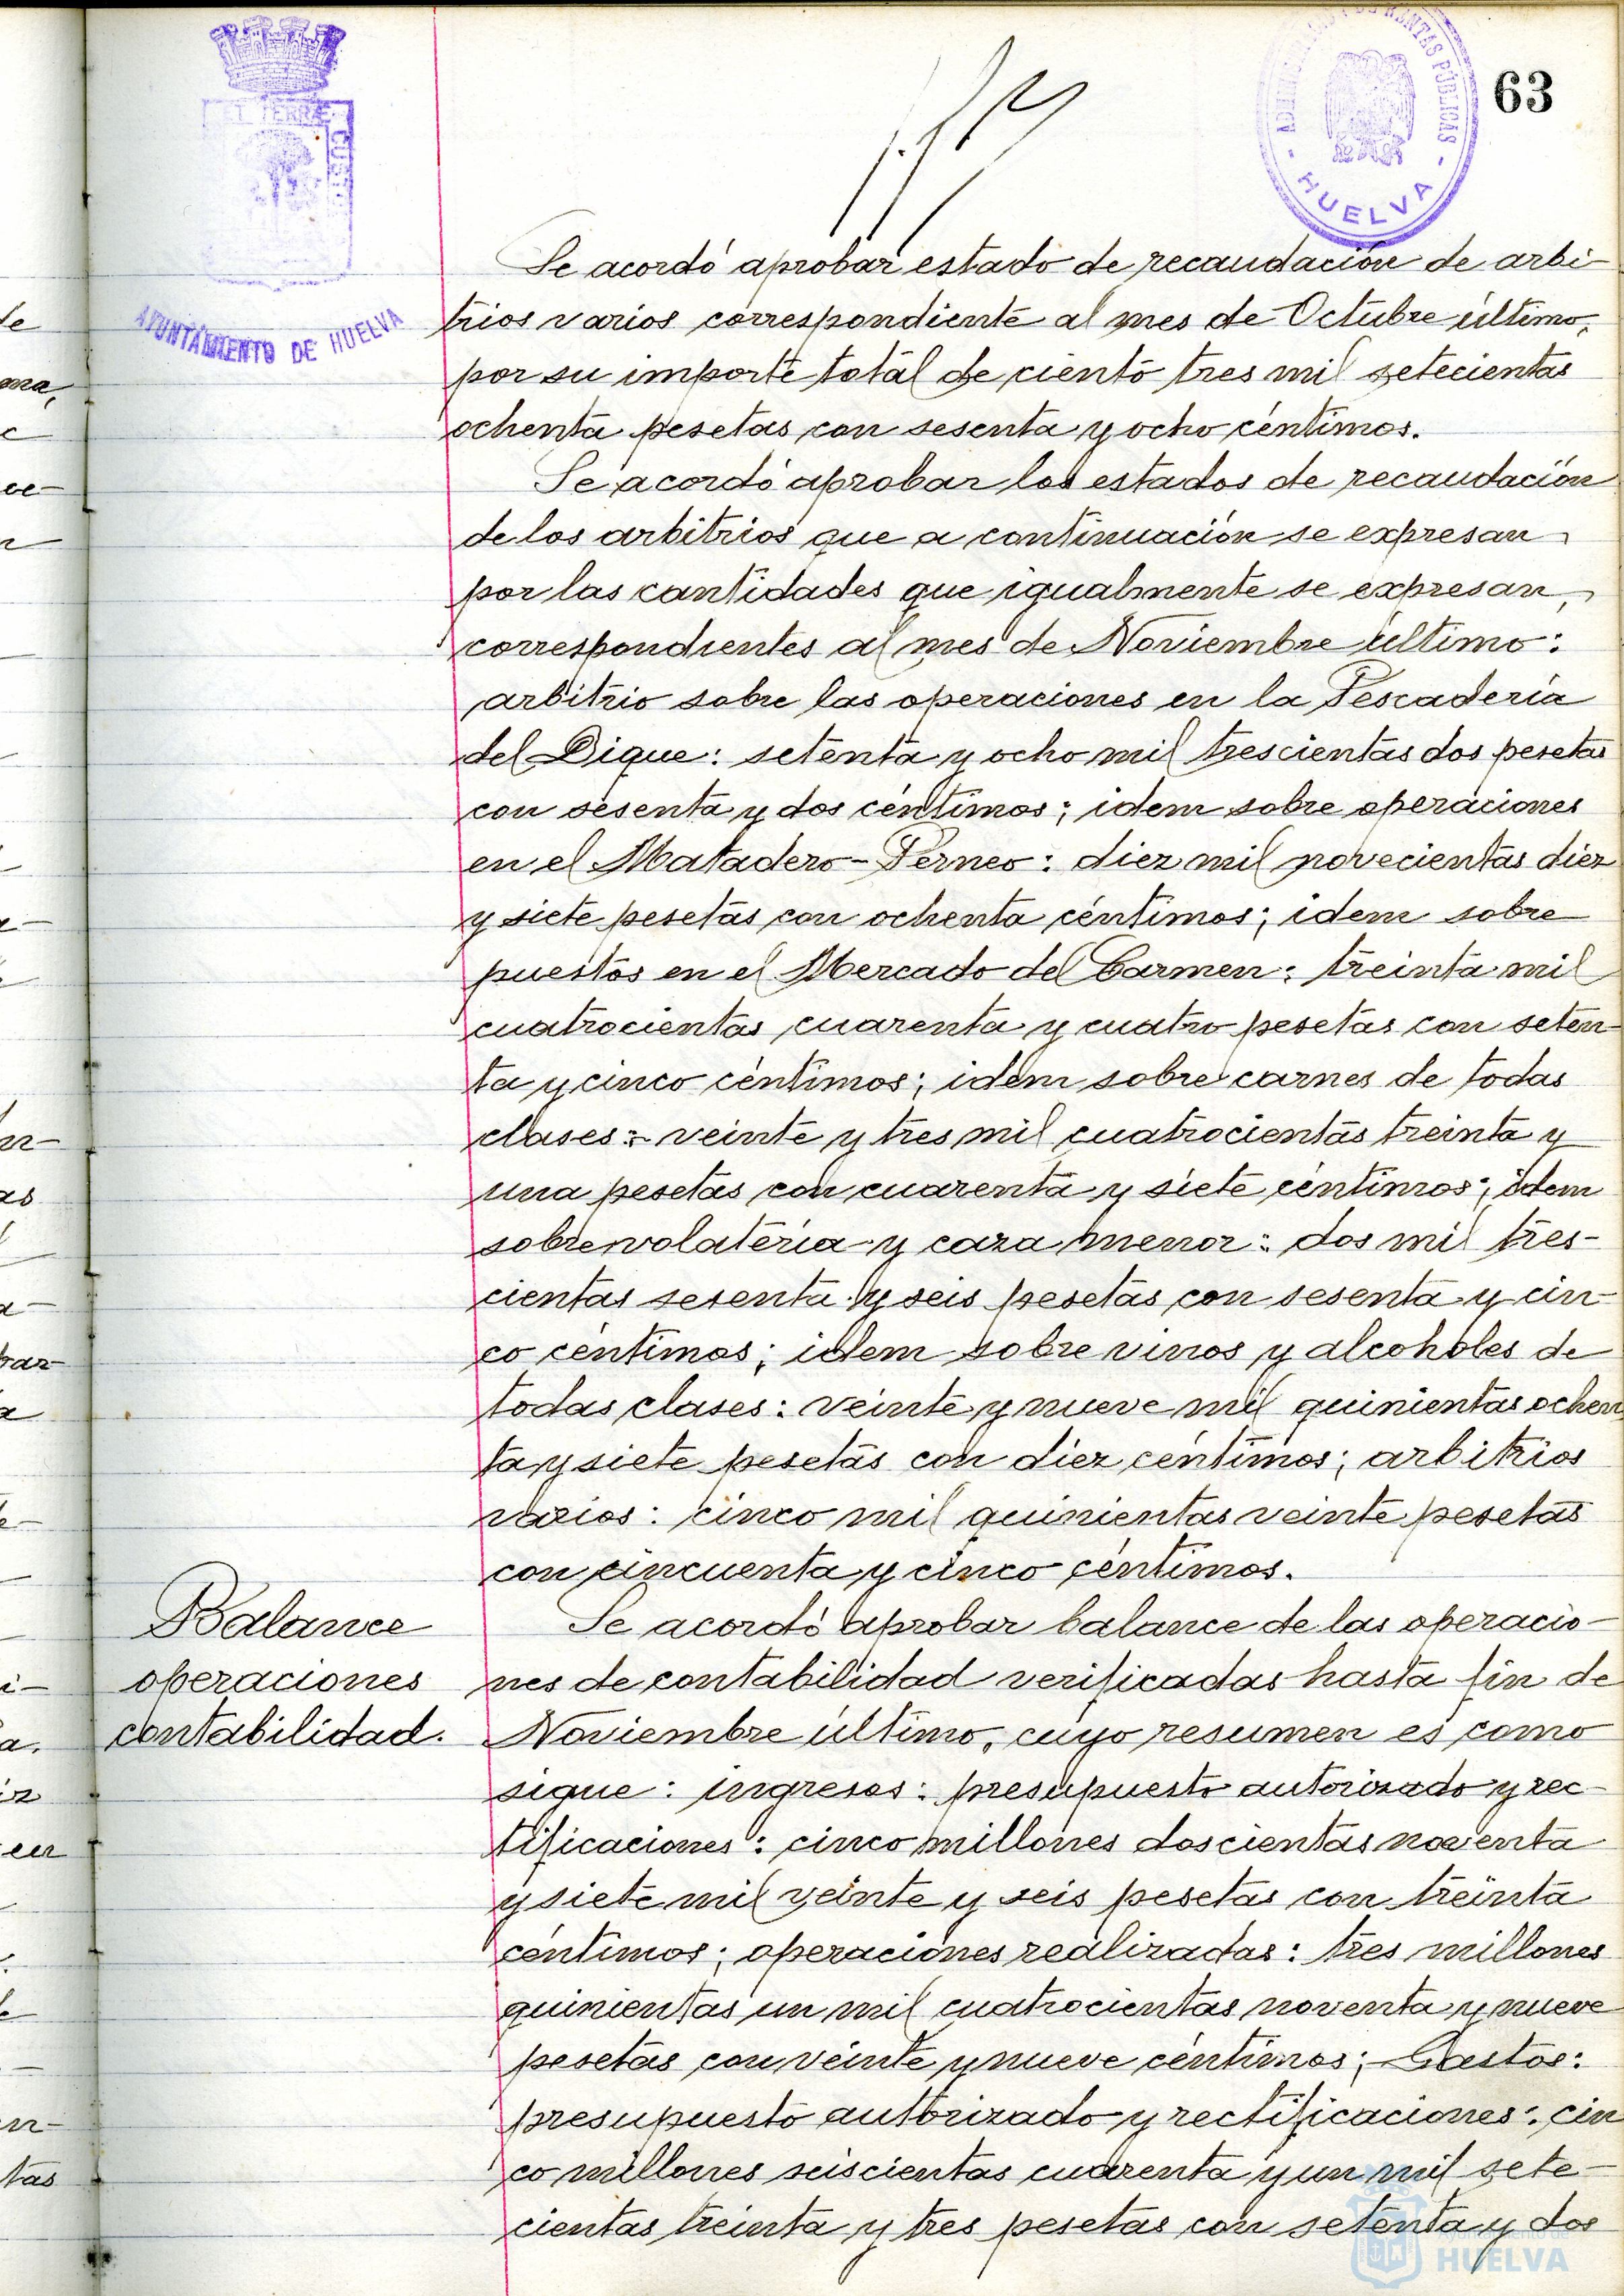 63
ET TERRÆ
CUSTO
AYUNTAMIENTO DE HUELVA
RENTAS PÚBLICAS
- HUELVA -
Se acordó aprobar estado de recaudación de arbi-
trios varios correspondiente al mes de Octubre último,
por su importe total de ciento tres mil setecientas
ochenta pesetas con sesenta y ocho céntimos.
Se acordó aprobar los estados de recaudación
de los arbitrios que a continuación se expresan
por las cantidades que igualmente se expresan,
correspondientes al mes de Noviembre último:
arbitrio sobre las operaciones en la Pescadería
del Dique: setenta y ocho mil trescientas dos pesetas
con sesenta y dos céntimos; idem sobre operaciones
en el Matadero-Perneo: diez mil novecientas diez
y siete pesetas con ochenta céntimos; idem sobre
puestos en el Mercado del Carmen: treinta mil
cuatrocientas cuarenta y cuatro pesetas con seten-
ta y cinco céntimos; idem sobre carnes de todas
clases: veinte y tres mil cuatrocientas treinta y
una pesetas con cuarenta y siete céntimos; idem
sobre volatería y caza menor: dos mil tres-
cientas y seis pesetas con sesenta y cin-
co céntimos; idem sobre vinos y alcoholes de
todas clases: veinte y nueve mil quinientas ochen
ta y siete pesetas con diez céntimos; arbitrios
varios: cinco mil quinientas veinte pesetas
con cincuenta y cinco céntimos.
Balance
operaciones
contabilidad.
Se acordó aprobar balance de las operacio-
nes de contabilidad verificadas hasta fin de
Noviembre último, cuyo resumen es como
sigue: ingresos: presupuesto autorizado y rec-
tificaciones: cinco millones doscientas noventa
y siete mil veinte y seis pesetas con treinta
céntimos; operaciones realizadas: tres millones
quinientas un mil cuatrocientas noventa y nueve
pesetas con veinte y nueve céntimos; Gastos:
presupuesto autorizado y rectificaciones: cin
co millones seiscientas cuarenta y un mil sete-
cientas treinta y tres pesetas con setenta y dos
HUELVA